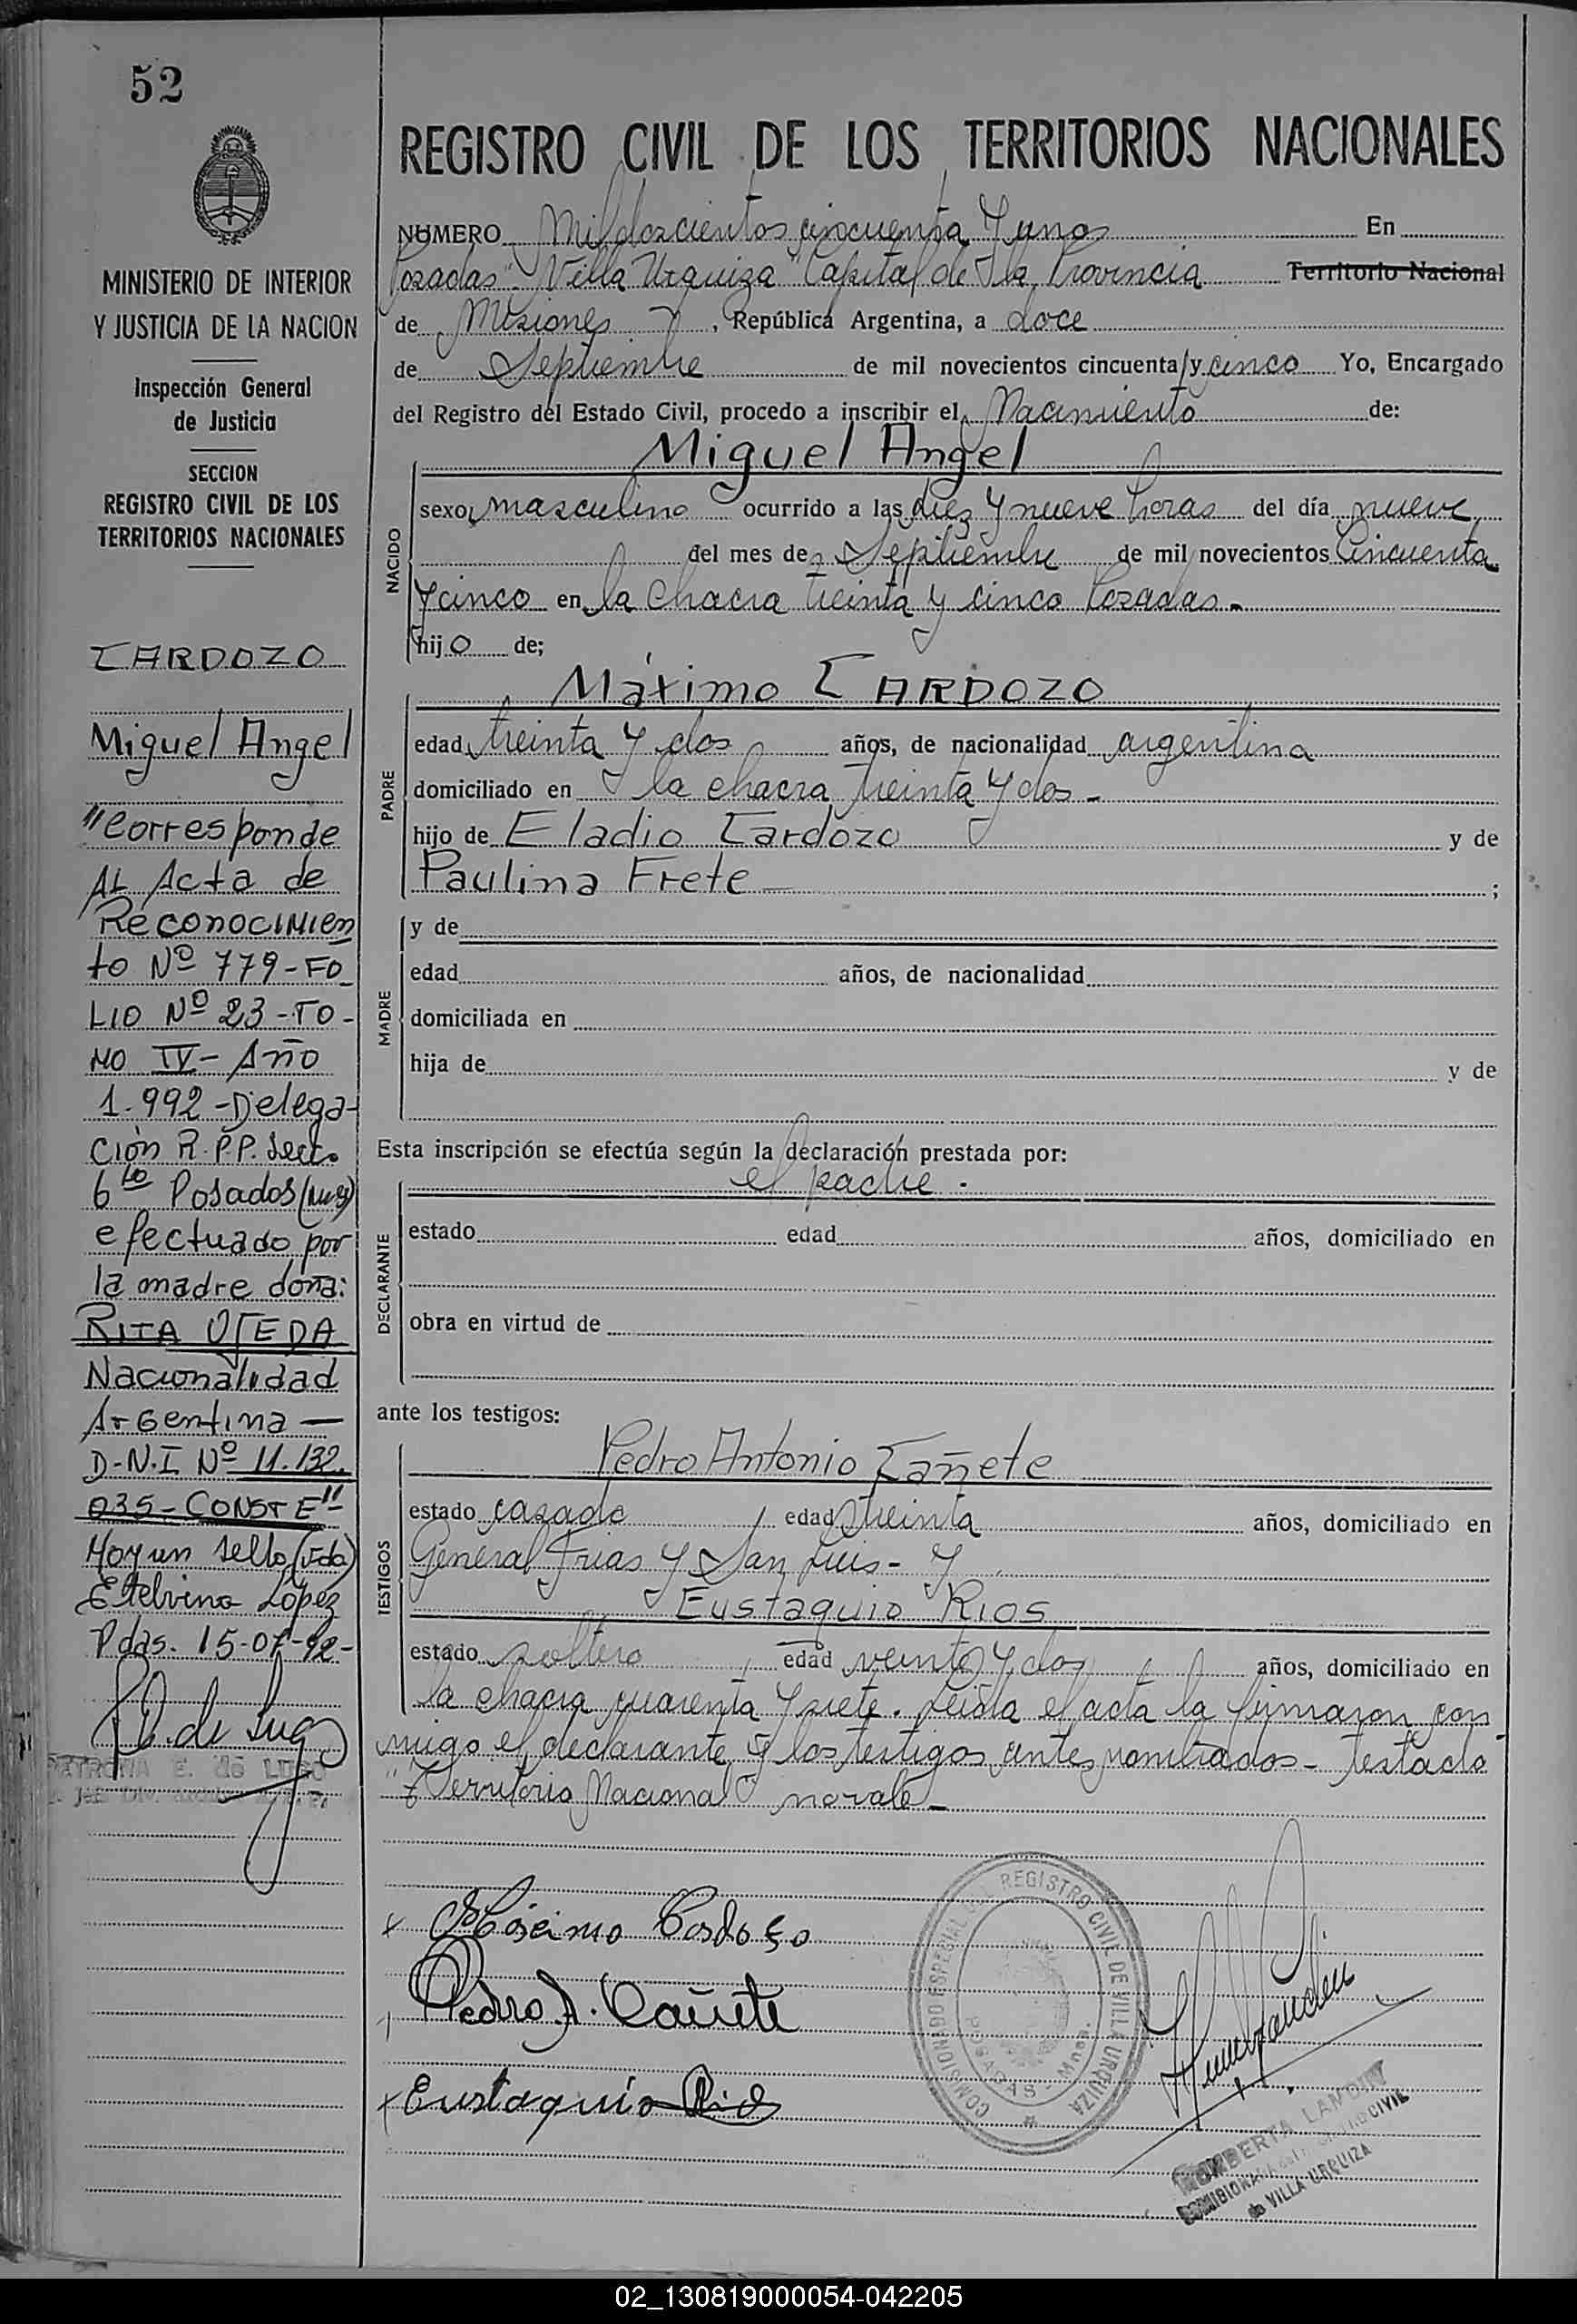 52
MINISTERIO DE INTERIOR
Y JUSTICIA DE LA NACION
Inspección General
de Justicia
SECCION
REGISTRO CIVIL DE LOS
TERRITORIOS NACIONALES
CARDOZO
Miguel Angel
"Corresponde
AL Acta de
Reconocimien
to Nº 779-FO
LIO Nº 23-TO-
MO IV- Año
1.992-Delega-
ción R.P.P. Secc.
6to Posadas
efectuado por
la madre doña:
RITA OJEDA
Nacionalidad
Argentina —
D.N.I Nº 11.132.
035-CONSTE"
Hay un sello
Etelvina López
Pdas. 15-07-92-
E. de LUGO
REGISTRO CIVIL DE LOS TERRITORIOS NACIONALES
NUMERO Mil doscientos cincuenta y uno En
Posadas "Villa Urquiza" Capital de la Provincia Territorio Nacional
de Misiones, República Argentina, a doce
de Septiembre de mil novecientos cincuenta y cinco Yo, Encargado
del Registro del Estado Civil, procedo a inscribir el Nacimiento de:
Miguel Angel
NACIDO
sexo masculino ocurrido a las diez y nueve horas del día nueve
del mes de Septiembre de mil novecientos cincuenta
y cinco en la chacra treinta y cinco Posadas.-
hijo de;
Máximo CARDOZO
PADRE
edad treinta y dos años, de nacionalidad argentina
domiciliado en la chacra treinta y dos -
hijo de Eladio Cardozo y de
Paulina Frete — ;
MADRE
y de
edad años, de nacionalidad
domiciliada en
hija de y de
Esta inscripción se efectúa según la declaración prestada por:
el padre.
DECLARANTE
estado edad años, domiciliado en
obra en virtud de
ante los testigos:
Pedro Antonio Cañete
TESTIGOS
estado casado edad treinta años, domiciliado en
General Frias y San Luis- y
Eustaquio Rios
estado soltero edad veinte y dos años, domiciliado en
la chacra cuarenta y siete. Leida el acta la firmaron con
migo el declarante y los testigos antes nombrados- Testado
"Territorio Nacional" no vale-
x Máximo Cardozo
Pedro A. Cañete
x Eustaquio Rios
COMISIONADO ESPECIAL DEL REGISTRO CIVIL DE VILLA URQUIZA
POSADAS - Mnes.
CIVIL
de VILLA URQUIZA
02_130819000054-042205